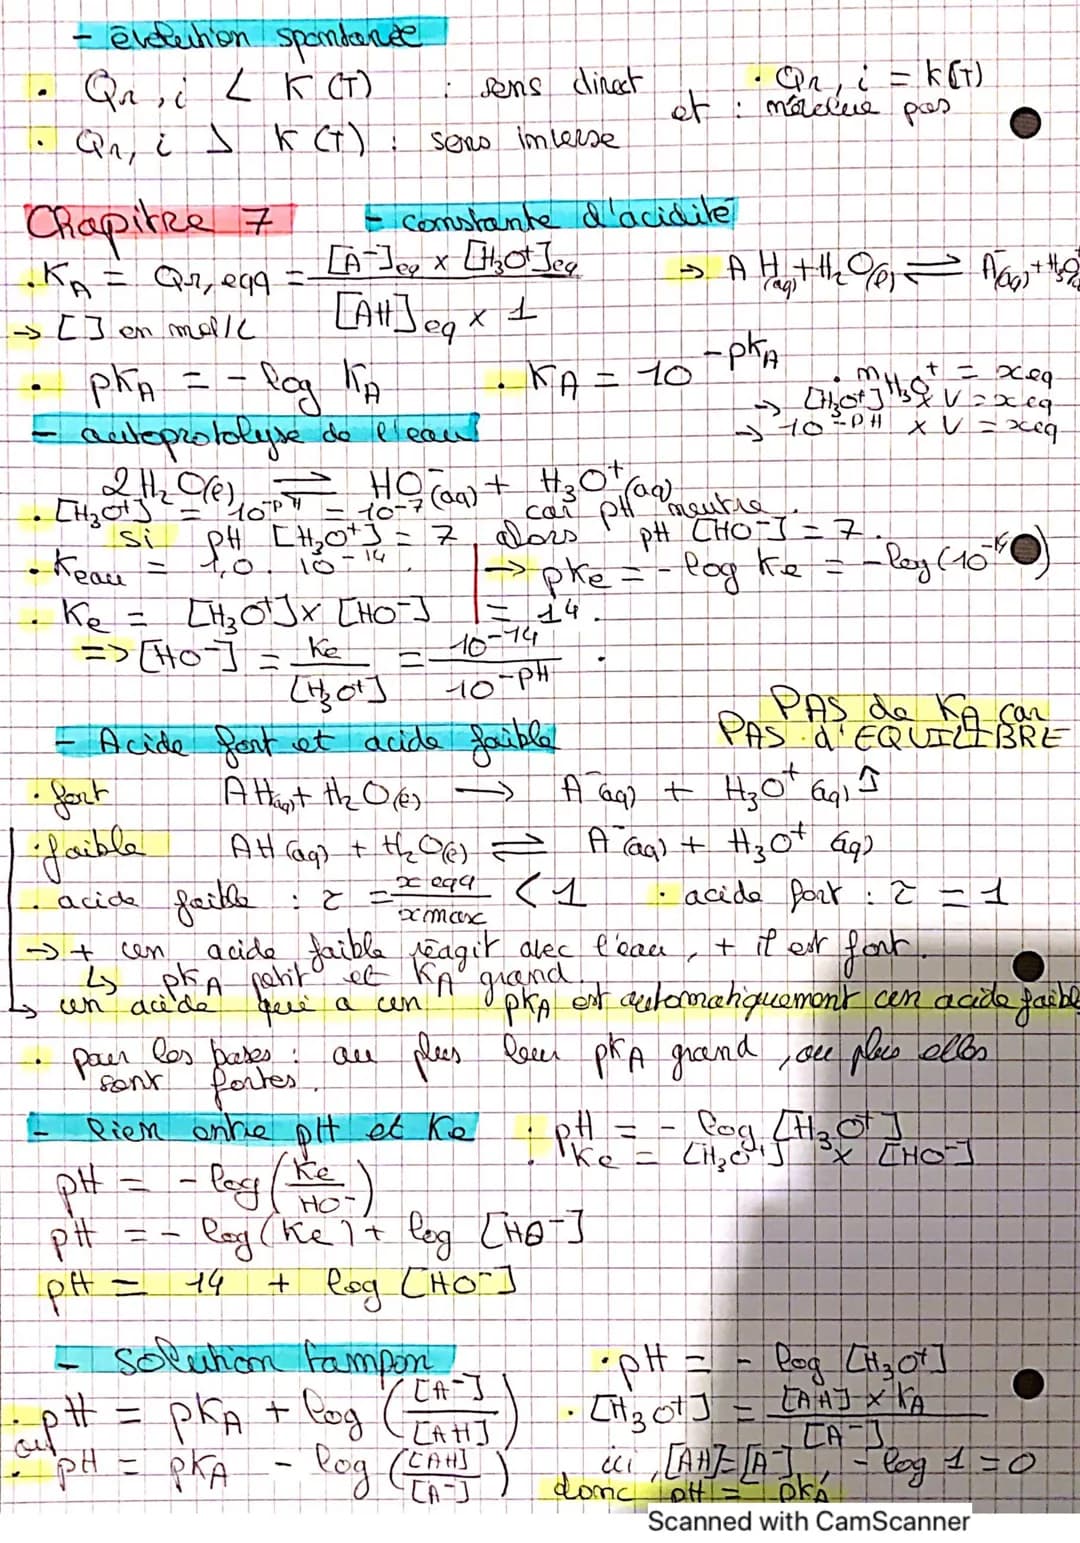 - évolution spontanée
• Qr,i < K(T) : sens direct
• Qr,i = K(T)
et : n'évolue pas
• Qr,i > K(T) : sens inverse
Chapitre 7
- constante d'acidité
• KA = Qr,eqq = [A-]eq × [H3O+]eq / [AH]eq × 1
→ AH(aq) + H2O(l) ⇌ A-(aq) + H3O
→ [ ] en mol/L
• pKA = - log KA
• KA = 10^-pKA
• nH3O+ = xeq
→ [H3O+] × V = xeq
→ 10^-pH × V = xeq
- autoprotolyse de l'eau
2H2O(l) ⇌ HO-(aq) + H3O+(aq)
• [H3O+] = 10^-pH = 10^-7 car pH neutre.
si pH [H3O+] = 7, alors pH [HO-] = 7.
• Keau = 1,0.10^-14.
→ pKe = - log Ke = - log(10^-14)
= 14.
• Ke = [H3O+] × [HO-]
=> [HO-] = Ke / [H3O+] = 10^-14 / 10^-pH.
- Acide fort et acide faible
PAS de KA car
PAS d'EQUILIBRE
• fort AH(aq) + H2O(l) → A-(aq) + H3O+(aq)
• faible AH(aq) + H2O(l) ⇌ A-(aq) + H3O+(aq)
• acide faible : τ = xeqq / xmax < 1
• acide fort : τ = 1
→ + un acide faible réagit avec l'eau, + il est fort.
↳ pKA petit et KA grand.
↳ un acide qui a un pKA est automatiquement un acide faible
• pour les bases : au plus leur pKA grand, au plus elles
sont fortes.
- lien entre pH et Ke
• pH = - log [H3O+]
• Ke = [H3O+] × [HO-]
pH = - log(Ke / HO-)
pH = - log(Ke) + log [HO-]
pH = 14 + log [HO-]
- solution tampon
• pH = - log [H3O+]
• pH = pKA + log ([A-] / [AH])
• [H3O+] = [AH] × KA / [A-]
ou
• pH = pKA - log ([AH] / [A-])
ici, [AH]=[A-], - log 1 = 0
donc pH = pKA
Scanned with CamScanner